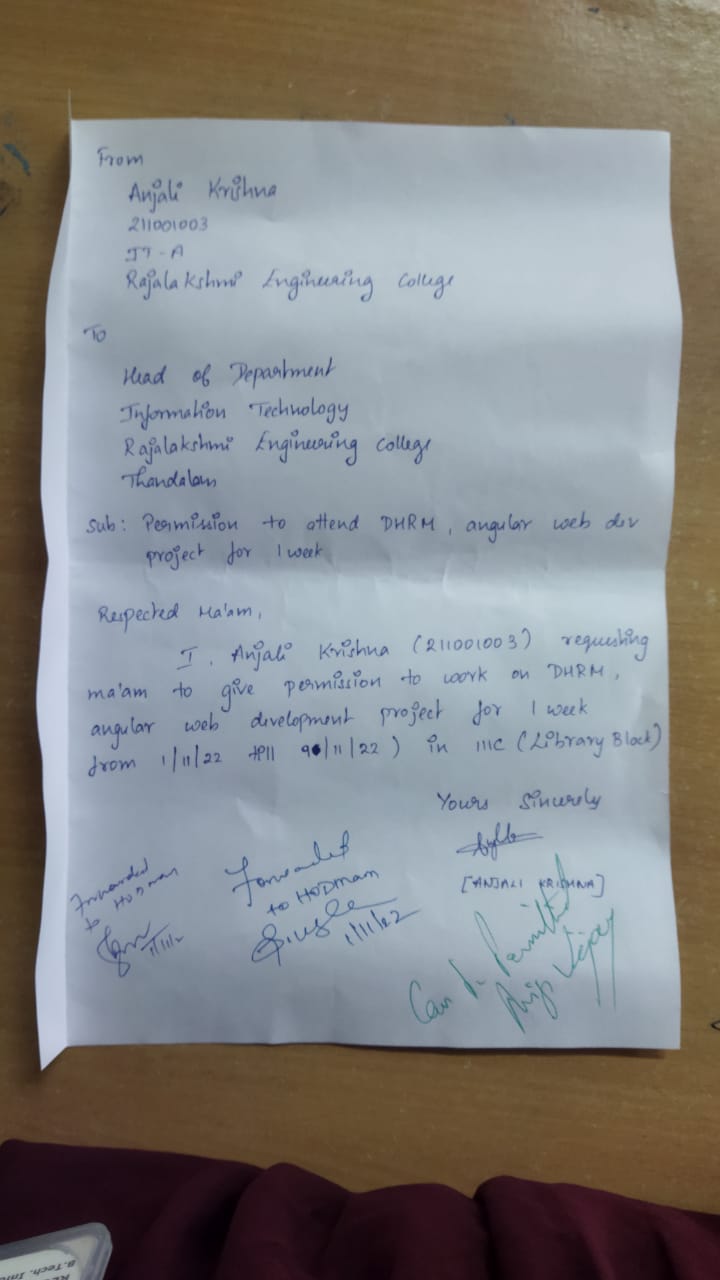 From
Anjali Krishna
211001003
IT-A
Rajalakshmi Engineering College
To
Head of Department
Information Technology
Rajalakshmi Engineering College
Thandalam
Sub: Permission to attend DHRM, angular web dev
project for 1 week
Respected Ma'am,
I, Anjali Krishna (211001003) requesting
ma'am to give permission to work on DHRM,
angular web development project for 1 week
from 1/11/22 till 9/11/22) in IIIC (Library Block)
Yours Sincerely
[ANJALI KRISHNA]
Forwarded
to HOD mam
1/11/2
Forwarded
to HOD mam
1/11/22
Can be Permitted
B.Tech.